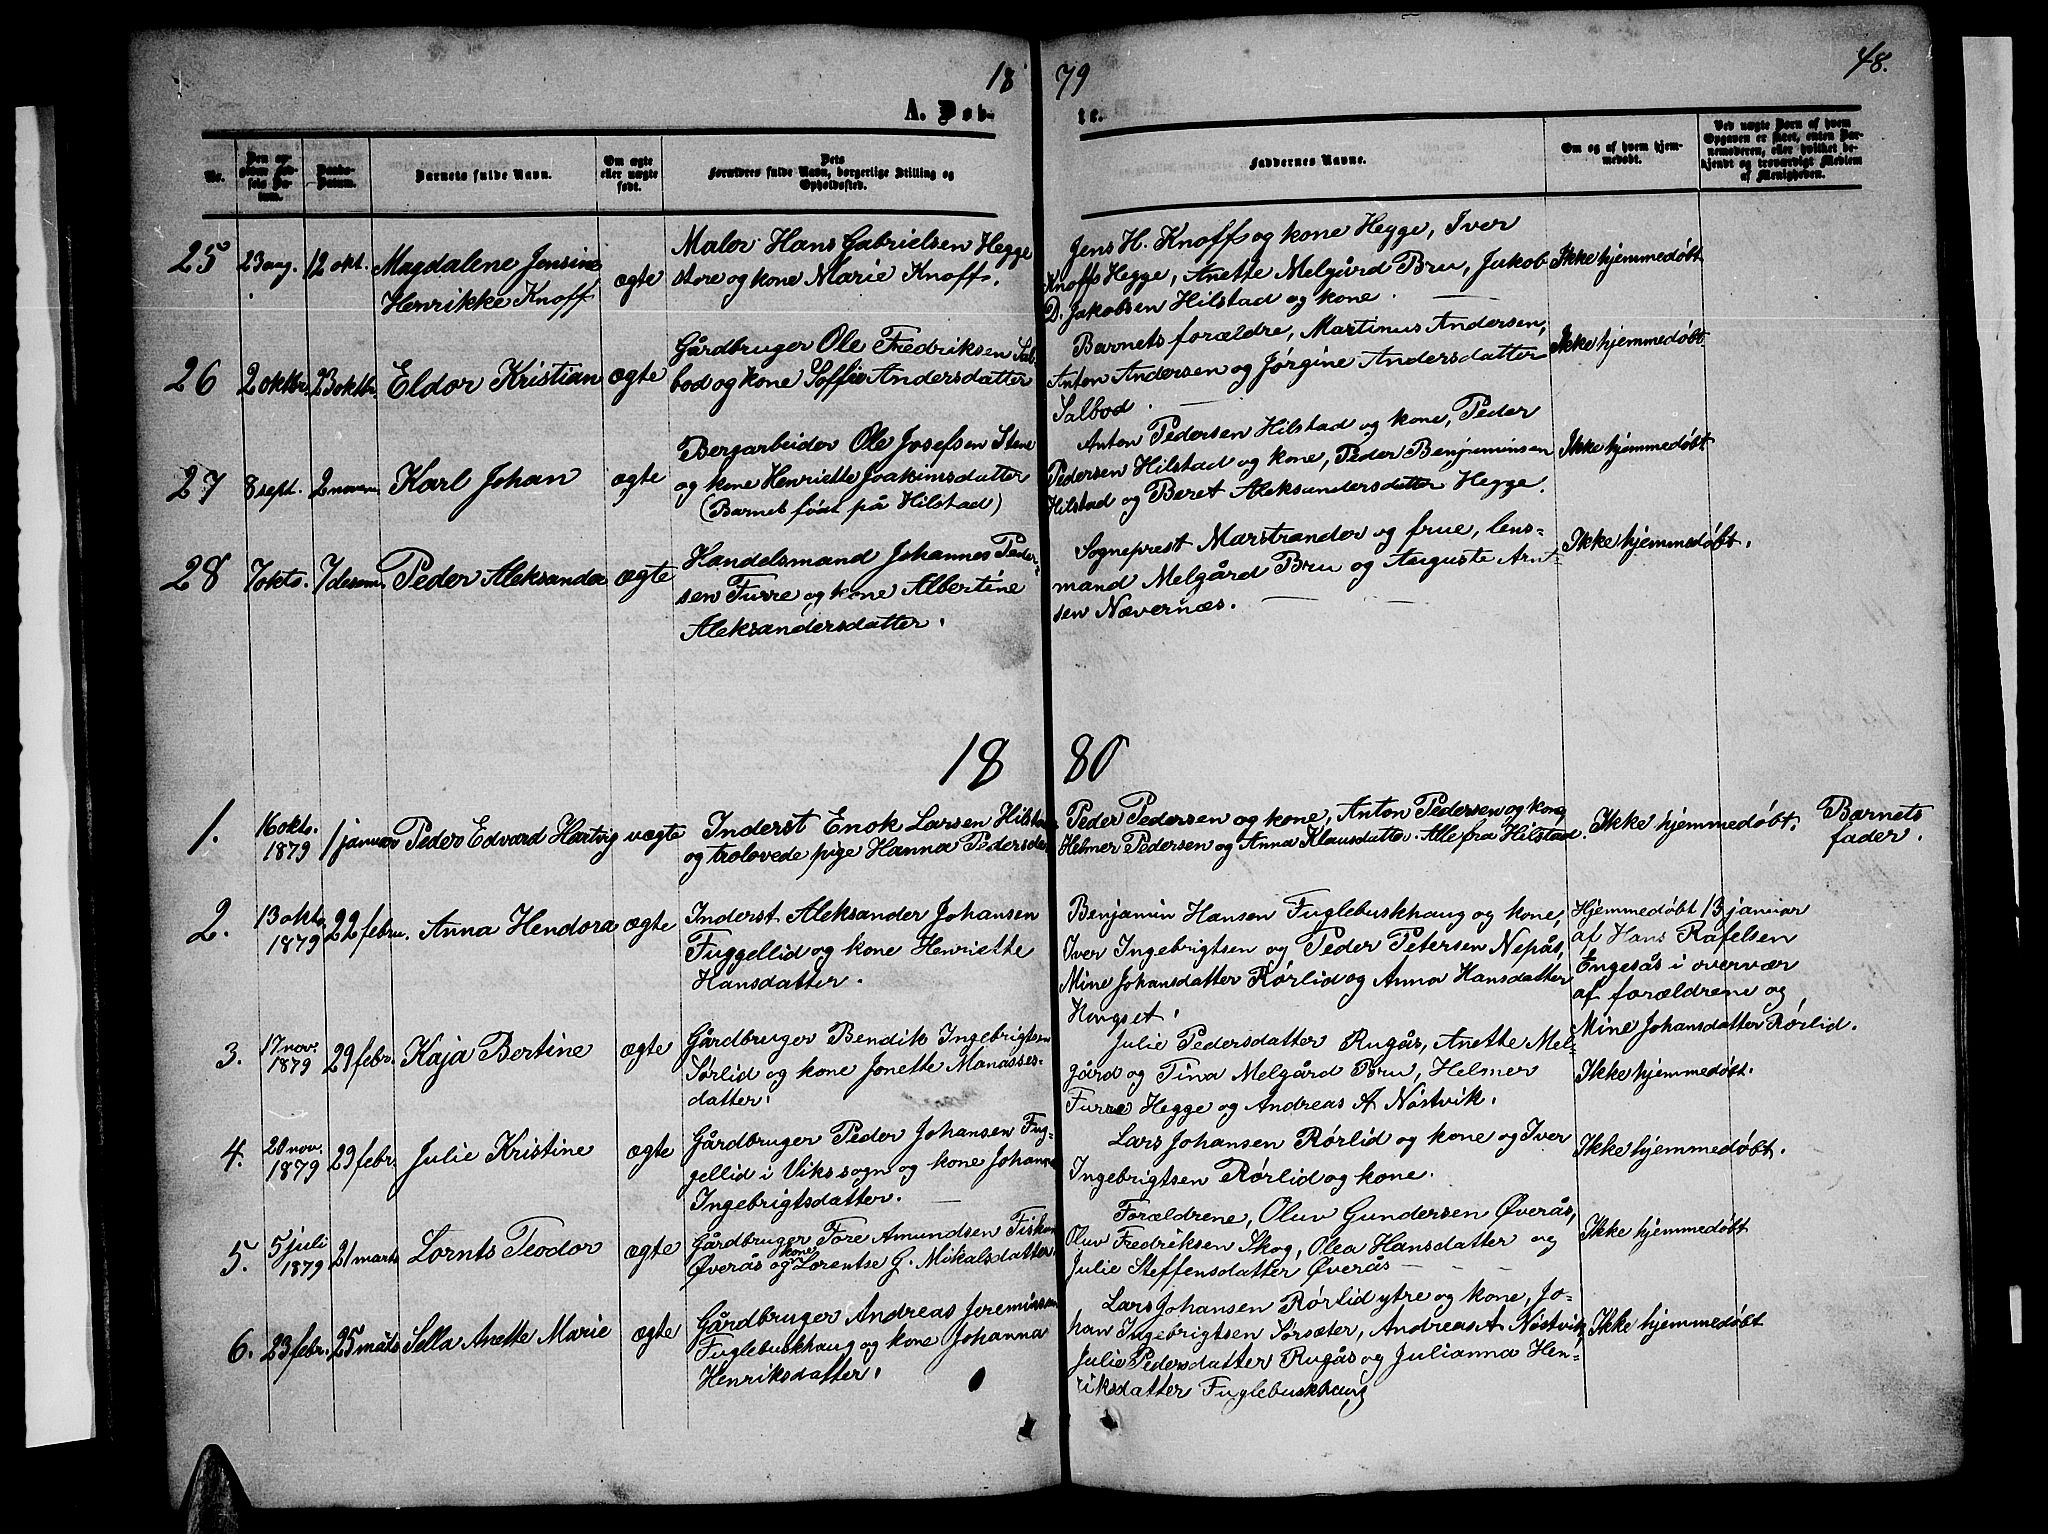 18 79
48.
A. Døb- te.
Nr.
Den opgivne Fødsels Datum.
Daabs-Datum.
Barnets fulde Navn.
Om ægte eller uægte født.
Dets Forældres fulde Navn, borgerlige Stilling og Opholdssted.
Faddernes Navne.
Om og af hvem hjemmedøbt.
Ved uægte Børn af hvem Opgaven er skeet, enten Barnemoderen, eller hvilket bekjendt og troværdigt Medlem af Menigheden.
25 23 aug. 12 okt. Magdalene Jensine
Henrikke Knoff
ægte
Maler Hans Gabrielsen Hegge
store og kone Marie Knoff.
Jens H. Knoff og kone Hegge, Iver
Knoff Hegge, Anette Melgård Bru, Jakob
D. Jakobsen Hilstad og kone.
Ikke hjemmedøbt
26 2 oktbr. 23 oktbr. Eldor Kristian ægte
Gårdbruger Ole Fredriksen Sal-
bod og kone Soffie Andersdatter
Barnets forældre, Martinus Andersen,
Anton Andersen og Jørgine Andersdatter
Salbod.
Ikke hjemmedøbt.
27 8 sept. 2 novem Karl Johan ægte
Bergarbeider Ole Josefsen Stene
og kone Henriette Joakimsdatter
(Barnet født på Hilstad)
Anton Pedersen Hilstad og kone, Peder
Pedersen Hilstad og kone, Peder Benjaminsen
Hilstad og Beret Aleksandersdatter Hegge.
Ikke hjemmedøbt
28 7 okto. 7 desem. Peder Aleksander ægte
Handelsmand Johannes Peder-
sen Furre og kone Albertine
Aleksandersdatter.
Sogneprest Marstrander og frue, lens-
mand Melgård Bru og Auguste Arnt-
sen Nævernæs.
Ikke hjemmedøbt.
18 80
1. 16 okto. 1879 1 januar Peder Edvard Hartvig uægte
Inderst Enok Larsen Hilstad
og trolovede pige Hanna Pedersdat
Peder Pedersen og kone, Anton Pedersen og kone,
Helmer Pedersen og Anna Klausdatter. Alle fra Hilstad.
Ikke hjemmedøbt.
Barnets
fader.
2. 13 okto 1879 22 febru. Anna Hendora ægte
Inderst Aleksander Johansen
Fuggellid og kone Henriette
Hansdatter.
Benjamin Hansen Fuglebuskhaug og kone,
Iver Ingebrigtsen og Peder Petersen Nepås,
Mine Johansdatter Rørlid og Anna Hansdatter
Hongset.
Hjemmedøbt 13 januar
af Hans Rafelsen
Engesås i overvær
af forældrene og
Mine Johansdatter Rørlid.
3. 17 nov. 1879 29 febr. Kaja Bertine ægte
Gårdbruger Bendik Ingebrigtsen
Sørlid og kone Jonette Manasses-
datter.
Julie Pedersdatter Rugås, Anette Mel-
gård og Tina Melgård Bru, Helmer
Furre Hegge og Andreas A Nøstvik.
Ikke hjemmedøbt.
4. 20 nov. 1879 29 febr. Julie Kristine ægte
Gårdbruger Peder Johansen Fug-
gellid i Viks sogn og kone Johanna
Ingebrigtsdatter.
Lars Johansen Rørlid og kone og Iver
Ingebrigtsen Rørlid og kone.
Ikke hjemmedøbt.
5. 5 juli 1879 21 marts Lornts Teodor ægte
Gårdbruger Tore Amundsen Fisker
Øverås og kone Lorentse G. Mikalsdatter.
Forældrene, Oluv Gundersen Øverås,
Oluv Fredriksen Skog, Olea Hansdatter og
Julie Steffensdatter Øverås
Ikke hjemmedøbt
6. 23 febr. 25 mats Sella Anette Marie ægte
Gårdbruger Andreas Jeremiassen
Fuglebuskhaug og kone Johanna
Henriksdatter.
Lars Johansen Rørlid ytre og kone, Jo-
han Ingebrigtsen Sørsæter, Andreas A Nøstvik,
Julie Pedersdatter Rugås og Julianna Hen-
riksdatter Fuglebuskhaug
Ikke hjemmedøbt